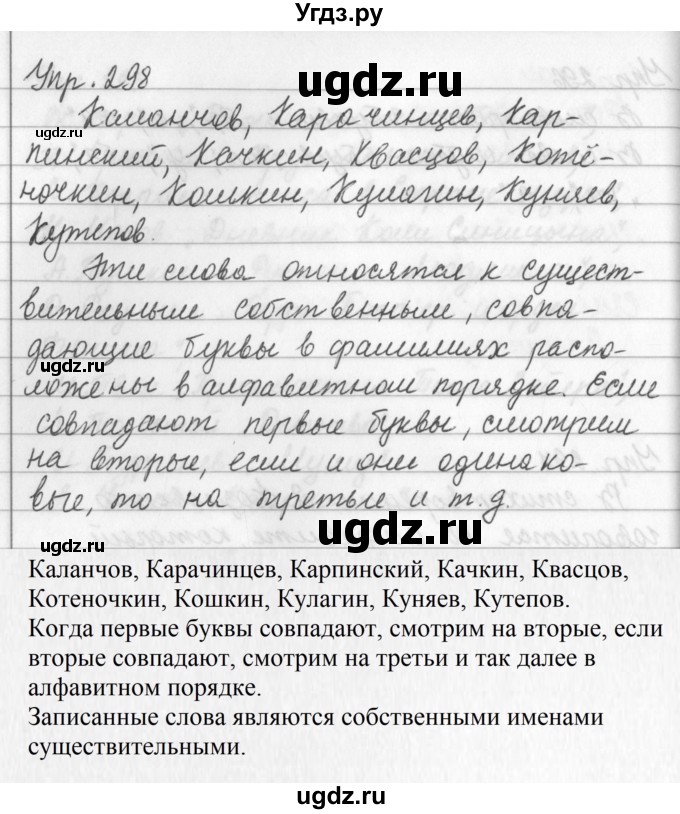 Угдз.ру
Упр. 298
ugdz.ru
Каланчов, Карачинцев, Кар-
ugdz.ru
пинский, Качкин, Квасцов, Котё-
ночкин, Кошкин, Кулагин, Куняев,
Кутепов.
Эти слова относятся к сущест-
вительным собственным, совпа-
дающие буквы в фамилиях распо-
ложены в алфавитном порядке. Если
совпадают первые буквы, смотрим
на вторые, если и они одинако-
вые, то на третьи и т.д.
ugdz.ru
ugdz.ru
Каланчов, Карачинцев, Карпинский, Качкин, Квасцов,
Котеночкин, Кошкин, Кулагин, Куняев, Кутепов.
Когда первые буквы совпадают, смотрим на вторые, если
вторые совпадают, смотрим на третьи и так далее в
алфавитном порядке.
Записанные слова являются собственными именами
существительными.
ugdz.ru